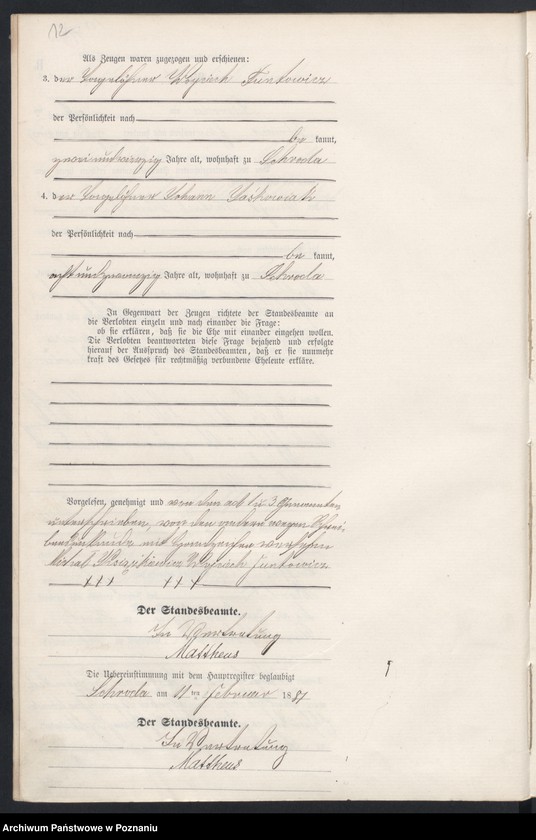 12
Als Zeugen waren zugezogen und erschienen:
3. der Wojciech Junkowicz
der Persönlichkeit nach
be kannt,
zweiundvierzig Jahre alt, wohnhaft zu Schroda
4. der Johann Jaskowiak
der Persönlichkeit nach
be kannt,
achtundzwanzig Jahre alt, wohnhaft zu Schroda
In Gegenwart der Zeugen richtete der Standesbeamte an
die Verlobten einzeln und nach einander die Frage:
ob sie erklären, daß sie die Ehe mit einander eingehen wollen.
Die Verlobten beantworteten diese Frage bejahend und erfolgte
hierauf der Ausspruch des Standesbeamten, daß er sie nunmehr
kraft des Gesetzes für rechtmäßig verbundene Eheleute erkläre.
Vorgelesen, genehmigt und von den ad 1 u 3 Genannten
unterschrieben, von den andern wegen Schrei-
bensunkunde mit Handzeichen versehen
Wojciech Junkowicz
+++ +++
Der Standesbeamte.
In Vertretung
Mattheus
Die Uebereinstimmung mit dem Hauptregister beglaubigt
Schroda am 11 ten Februar 1881
Der Standesbeamte.
In Vertretung
Mattheus
Archiwum Państwowe w Poznaniu